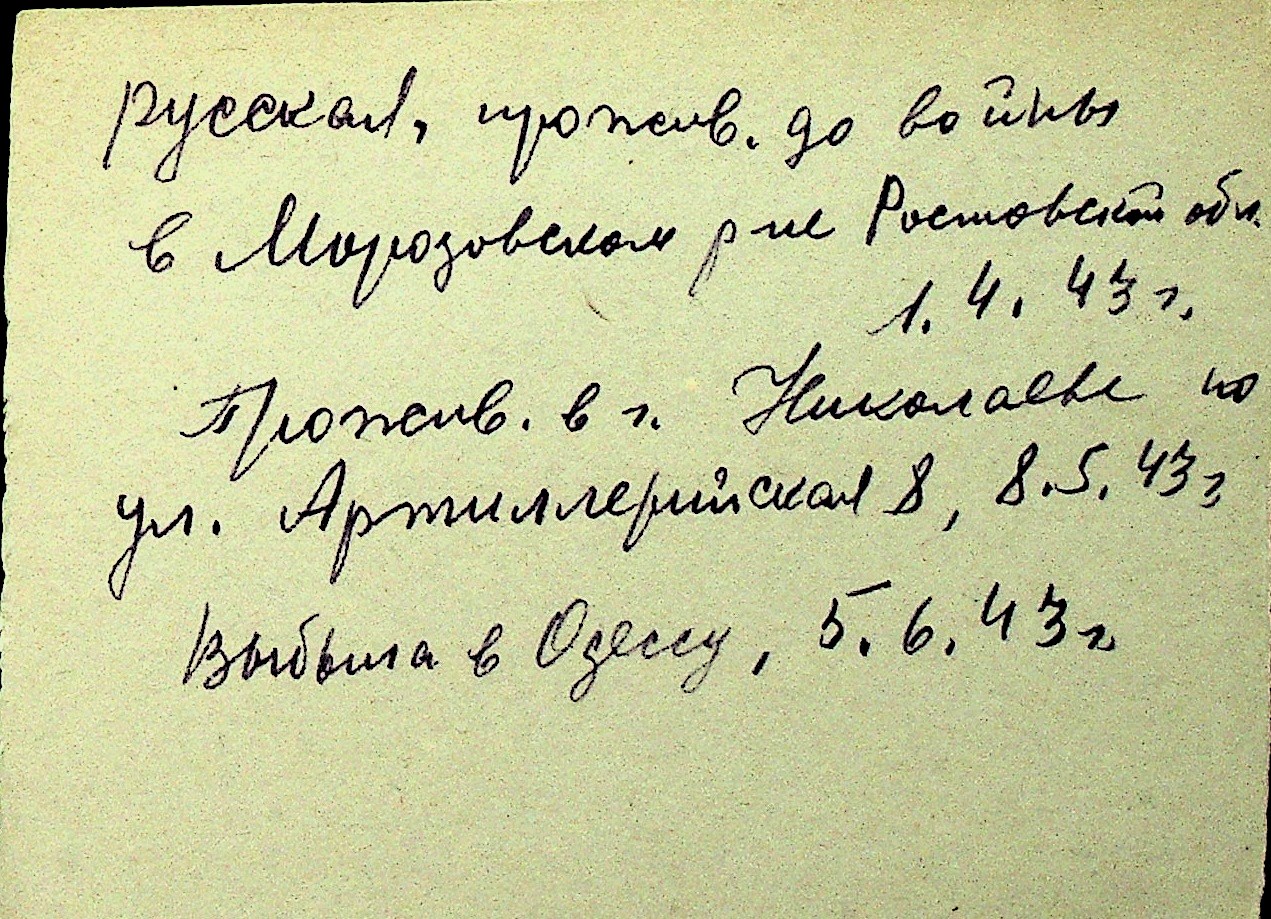 русская, прожив. до войны
в Морозовском р-не Ростовской обл.
1.4.43 г.
Прожив. в г. Николаеве по
ул. Артиллерийская 8, 8.5.43 г
Выбыла в Одессу, 5.6.43 г.